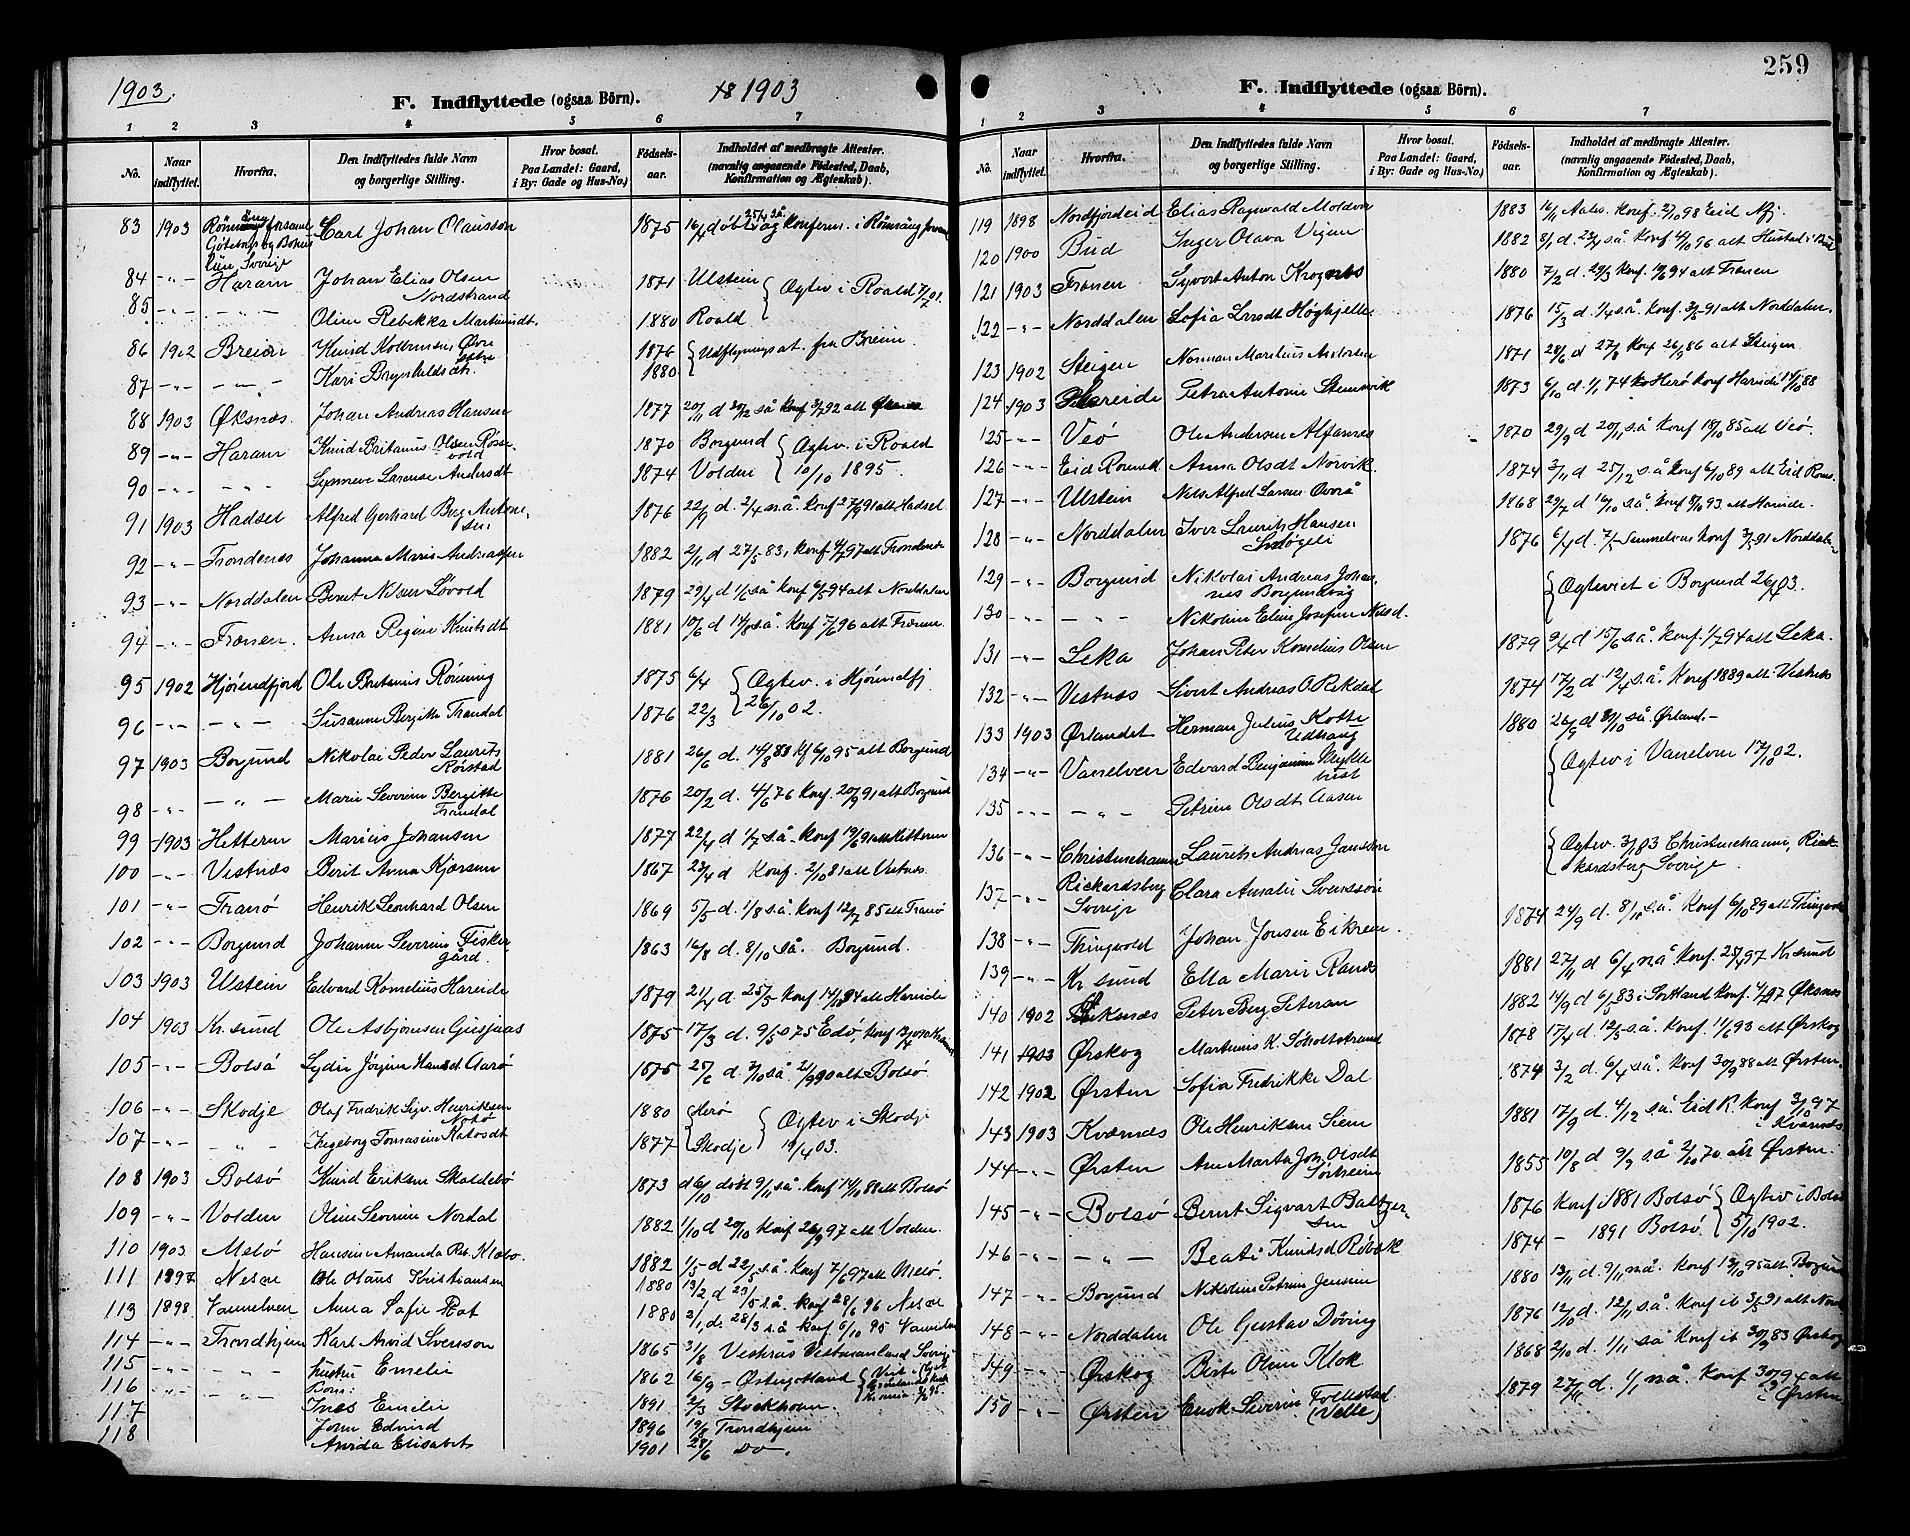 1903.
F. Indflyttede (ogsaa Börn).
1903
1 2 3 4 5 6 7
No. Naar indflyttet. Hvorfra. Den Indflyttedes fulde Navn og borgerlige Stilling. Hvor bosat. Paa Landet: Gaard, i By: Gade og Hus-No.) Födsels-aar. Indholdet af medbragte Attester. (navnlig angaaende Födested, Daab, Konfirmation og Ægteskab).
83 1903 Carl Johan Olausson 1875 16/4 döbt 25/4 s.å og konferm. i
Göteborgs og Bohus
län, Sverige
84 -"- Haram Johan Elias Olsen Nordstrand 1871 Ulstein { Ægtev i Roald 7/7 01.
85 -"- -"- Oline Rebekka Martinusdt. 1880 Roald
86 1902 Breim Knud Kolbensen Øvre 1876 { Udflytningsat. fra Breim
87 -"- -"- Kari Brynhildsdt. 1880
88 1903 Øksnæs. Johan Andreas Hansen 1877 20/11 d 30/12 så Konf 3/7 92 alt Øksnæs
89 -"- Haram Knud Britanus Olsen Røsevold 1870 Borgund { Ægtev. i Roald
90 -"- -"- Synneve Larense Andersdt 1874 Volden 10/10 1895.
91 1903 Hadsel Alfred Gerhard Berg Antonsen 1876 22/9 d. 2/4 n.å. Konf 27/9 91 alt Hadsel
92 -"- Trondenes Johanna Marie Andreassen 1882 2/11 d 27/5 83, Konf 4/7 97 alt Trondenes
93 -"- Norddalen Bernt Nilsen Løvold 1879 29/4 d 1/6 så Konf 6/5 94 alt Norddalen
94 -"- Frænen. Anna Regine Knutsdt 1881 10/6 d 14/8 s.å. Konf 7/6 96 alt Frænen.
95 1902 Hjørendfjord Ole Britanus Rönning 1875 6/4 { Ægtev. i Hjörundfj
96 -"- -"- Susanne Bergitte Trandal 1876 22/3 26/10 02.
97 1903 Borgund Nikolai Peder Laurits Rörstad 1881 26/6 d. 14/8 83 Kf 6/10 95 alt Borgund
98 -"- -"- Marie Severine Bergitte Trandal 1876 20/2 d. 4/6 76 Konf. 20/9 91 alt Borgund
99 -1903 Hitteren Marius Johansen 1877 22/4 d 1/7 s.å. Konf 19/6 91 alt Hitteren
100 -"- Vestnæs Berit Anna Kjærsem 1867 23/4 d Konf. 2/10 81 alt Vestnes.
101 -"- Tranö Henrik Leonhard Olsen 1869 5/5 d. 1/8 s.å. Konf 12/7 85 alt Tranö
102 -"- Borgund Johanne Severine Fiskergård. 1863 16/8 d. 8/10 så. Borgund.
103 1903 Ulstein Edvard Kornelius Hareide 1879 21/4 d 25/5 Konf 14/10 94 alt Hareide
104 1903 Kr.sund Ole Asbjörnsen Gusjaas 1875 17/3 d. 9/5 75 Edö, Konf
105 -"- Bolsö Lydie Jörgine Hansd. Aarö 1875 25/6 d. 3/10 så 21/9 90 alt Bolsö
106 -"- Skodje Olaf Fredrik Sigv. Henriksen 1880 { Herö } Ægtev i Skodje
107 -"- -"- Ingeborg Tomasine 1877 { Skodje 19/4 03.
108 1903 Bolsö Knud Eriksen Skaldebö 1873 d 6/10 döbt 9/11 så. Konf 14/10 88 alt Bolsö
109 -"- Volden Oline Severine Nordal 1882 1/10 d 20/10 Konf 26/9 97 alt Volden.
110 1903 Melö Hansine Amanda Reb. Klæbo 1882 1/5 d 22/5 s.å. Konf 7/6 97 alt Melö.
111 1897 Nesne Ole Olaus Kristiansen 1880 13/2 d 23/5 s.å. Konf 28/6 96 Nesne
113 1898 Vannelven Anna Sofie 1880 2/1, d. 28/3 s.å Konf 6/10 95 Vannelven
114 -"- Trondhjem Karl Arvid Svensson 1865 31/8 Vesterås Vestmanland Sverige
115 -"- -"- hustru Emelie 1862 16/9 - Östergotland
116 -"- -"- Born:
117 Ines Emelie 1891 2/3 Stockholm.
118 John Edvind 1896 19/8 Trondhjem
Arvida Elisabet 1901 28/6 Do.
259
F. Indflyttede (ogsaa Börn).
1 2 3 4 5 6 7
No. Naar indflyttet. Hvorfra. Den Indflyttedes fulde Navn og borgerlige Stilling. Hvor bosat. Paa Landet: Gaard, i By: Gade og Hus-No.) Födsels-aar. Indholdet af medbragte Attester. (navnlig angaaende Födested, Daab, Konfirmation og Ægteskab).
119 1898 Nordfjordeid Elias Ragnvald Moldvær 1883 16/11 Aales. Konf. 2/10 98 Eid Nfj.
120 1900 Bud Inger Olava Vigen 1882 8/1 d. 23/4 så. Konf. 4/10 96 alt Hustad i Bud
121 1903 Frænen Syvert Anton 1880 7/2 d. 29/3 Konf 10/6 94 alt Frænen
122 -"- Norddalen Sofia Larsdt Höghjelle 1876 15/3 d. 1/4 s.å. Konf. 3/5 91 alt Norddalen.
123 1902 Steigen Norman Marelius Andersen 1871 28/6 d 27/8 Konf 26/9 86 alt Steigen
124 1903 Hareide Petra Antonie Stemsvik 1873 6/10 d. 1/1 74 Herö Konf Hareide 14/10 88
125 -"- Veö Ole Andersen Alfarnæs 1870 29/9 d 20/11 s.å Konf 18/10 85 alt Veö.
126 -"- Eid Romsd Anna Olsdt Norvik. 1874 3/11 d 25/12 s.å Konf 6/10 89 alt Eid Roms.
127 -"- Ulstein Nils Alfred Larsen Overå 1868 29/7 d 16/10 så. Konf 8/10 93 alt Hareide.
128 -"- Norddalen Iver Laurits Hansen 1876 6/4 d. 7/5 Konf 3/5 91 Norddalen
129 -"- Borgund Nikolai Andreas Johannes Borgundvåg { Ægteviet i Borgund 26/4 03.
130 -"- Nikoline Eline Josefine Nilsd.
131 -"- Leka Johan Peter Kornelius Olsen 1879 9/4 d 15/6 s.å. Konf. 1/7 94 alt Leka.
132 -"- Vestnæs Sivert Andreas O Rekdal 1874 17/2 d 12/4 s.å. Konf 1889 alt Vestnæs
133 1903 Ørlandet Herman Julius Kotte Udhaug 1880 26/9 d 31/10 så. Ørland.-
134 -"- Vanelven Edvard Benjamin Myklebust { Ægtev i Vanelven 17/10 02.
135 -"- -"- Petrine Olsdt Aasen
136 -"- Christinehamn Laurits Andreas Jansson { Ægtev. 3/1 03 Christinehamn, Rick-
137 -"- Rickardsberg Sverige Clara Amalie Svensson karsberg Sverige
138 -"- Thingvold Johan Jonsen Eikrem. 1874 24/9 d. 8/10 s.å. Konf 6/10 89 alt Thingvold
139 -"- Kr sund Ella Marie Ranes 1881 27/11 d 6/4 n.å. Konf. 25/4 97 Kr.sund
140 1902 Öksnæs Peter Berg Petersen 1882 14/9 d 6/5 83 i Sortland Konf. 4/7 97 Øksnæs
141 1903 Ørskog Martinus K. Söholtstrand 1878 17/4 d 12/5 s.å. Konf. 11/6 93 alt Ørskog
142 1902 Ørsten Sofie Fredrikke Dal 1874 3/2 d. 6/4 s.å. Konf. 30/9 88 alt Ørsten.
143 1903 Kværnæs Ole Henriksen Siem 1881 17/9 d. 4/12 så. Eid R. Konf 3/10 97 i Kværnæs
144 -"- Ørsten Ane Marta Joh. Olsdt 1855 10/8 d 9/9 s.å 2/10 70 alt Ørsten.
145 -"- Bolsö Bernt Sigvart Baltzersen 1876 Konf i 1881 Bolsö { Ægtev i Bolsö
146 -"- -"- Beate Knudsd Röbæk 1874 - 1891 Bolsö 5/10 1902.
147 -"- Borgund Nikoline Petrine Jensine 1880 13/11 d. 9/11 n.å. Konf 13/10 95 alt Borgund
148 -"- Norddalen Ole Gustav Döving 1876 12/10 d. 12/11 s.å. Konf ib 3/5 91 alt Nord
149 -"- Ørskog Birte Oline Klok 1868 2/10 d. 1/11 så Konf ib 30/9 83 Ørskog
150 -"- Ørsten Enok Severin Folkestad (Velle) 1879 27/11 d. 1/1 n.å. Konf 30/9 94 alt i Ørsten